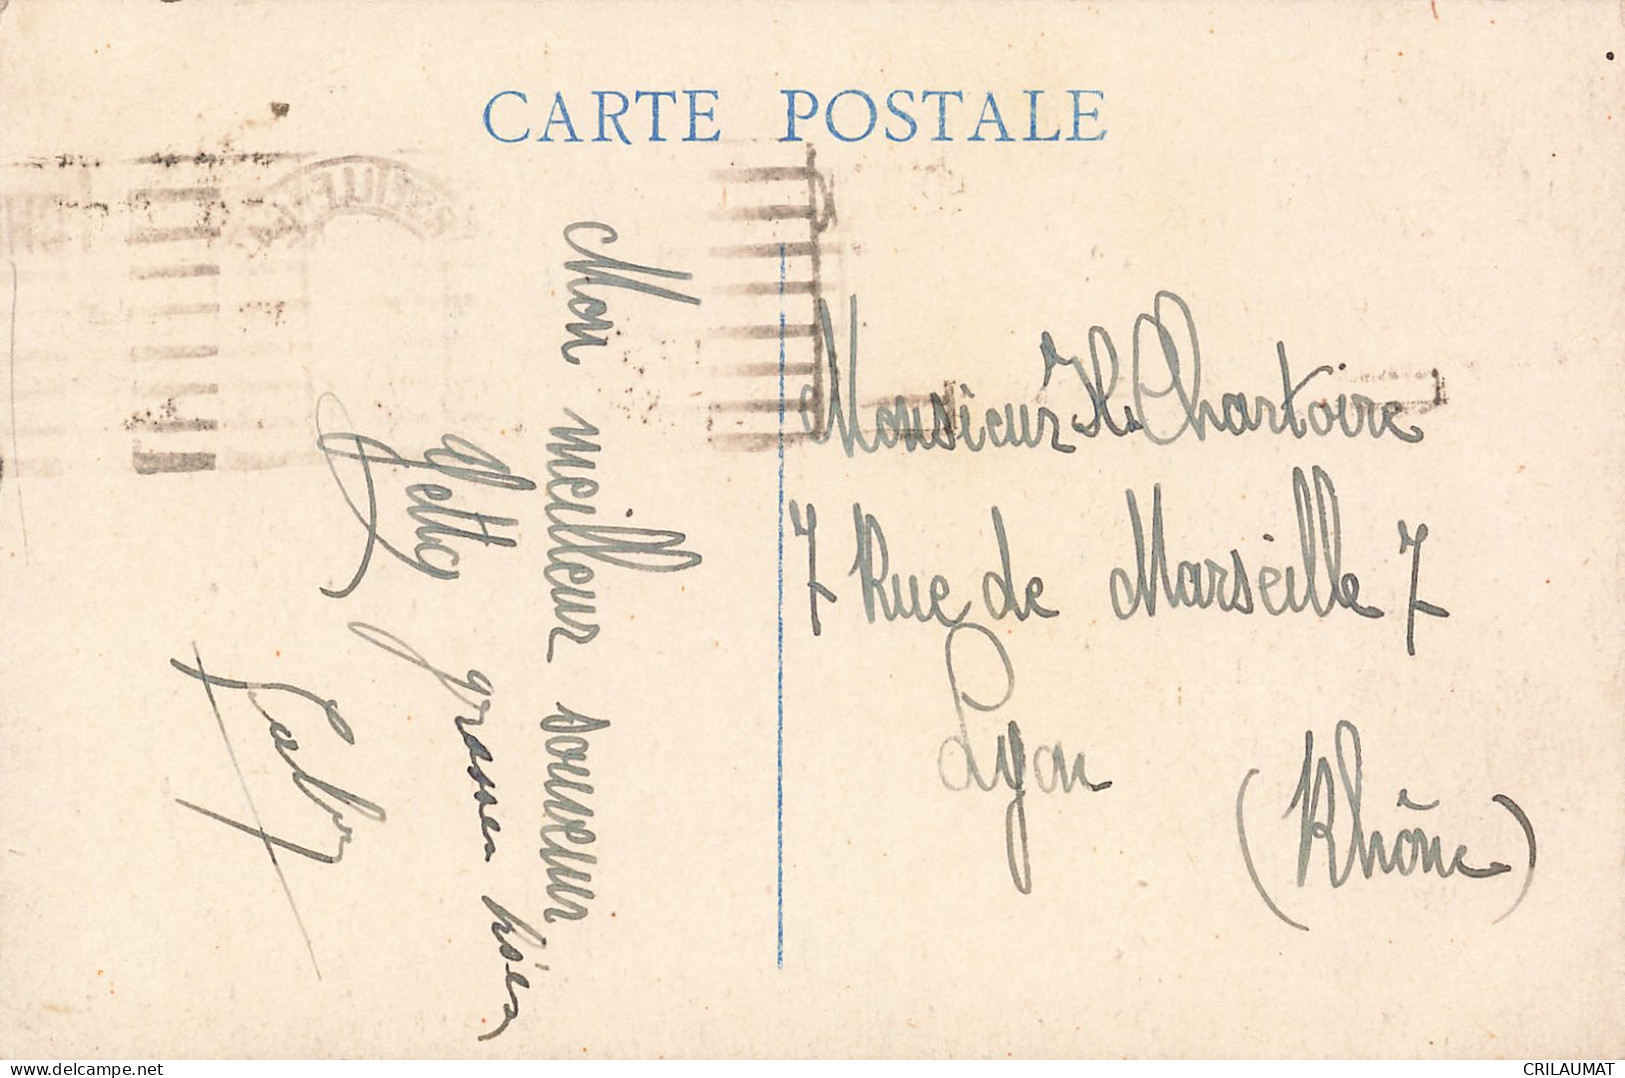 CARTE POSTALE
Mon meilleur souvenir
grosses bises
Gaby
Monsieur H. Chartoire
7 Rue de Marseille 7
Lyon
(Rhône)
Delcampe.net
CRILAUMAT